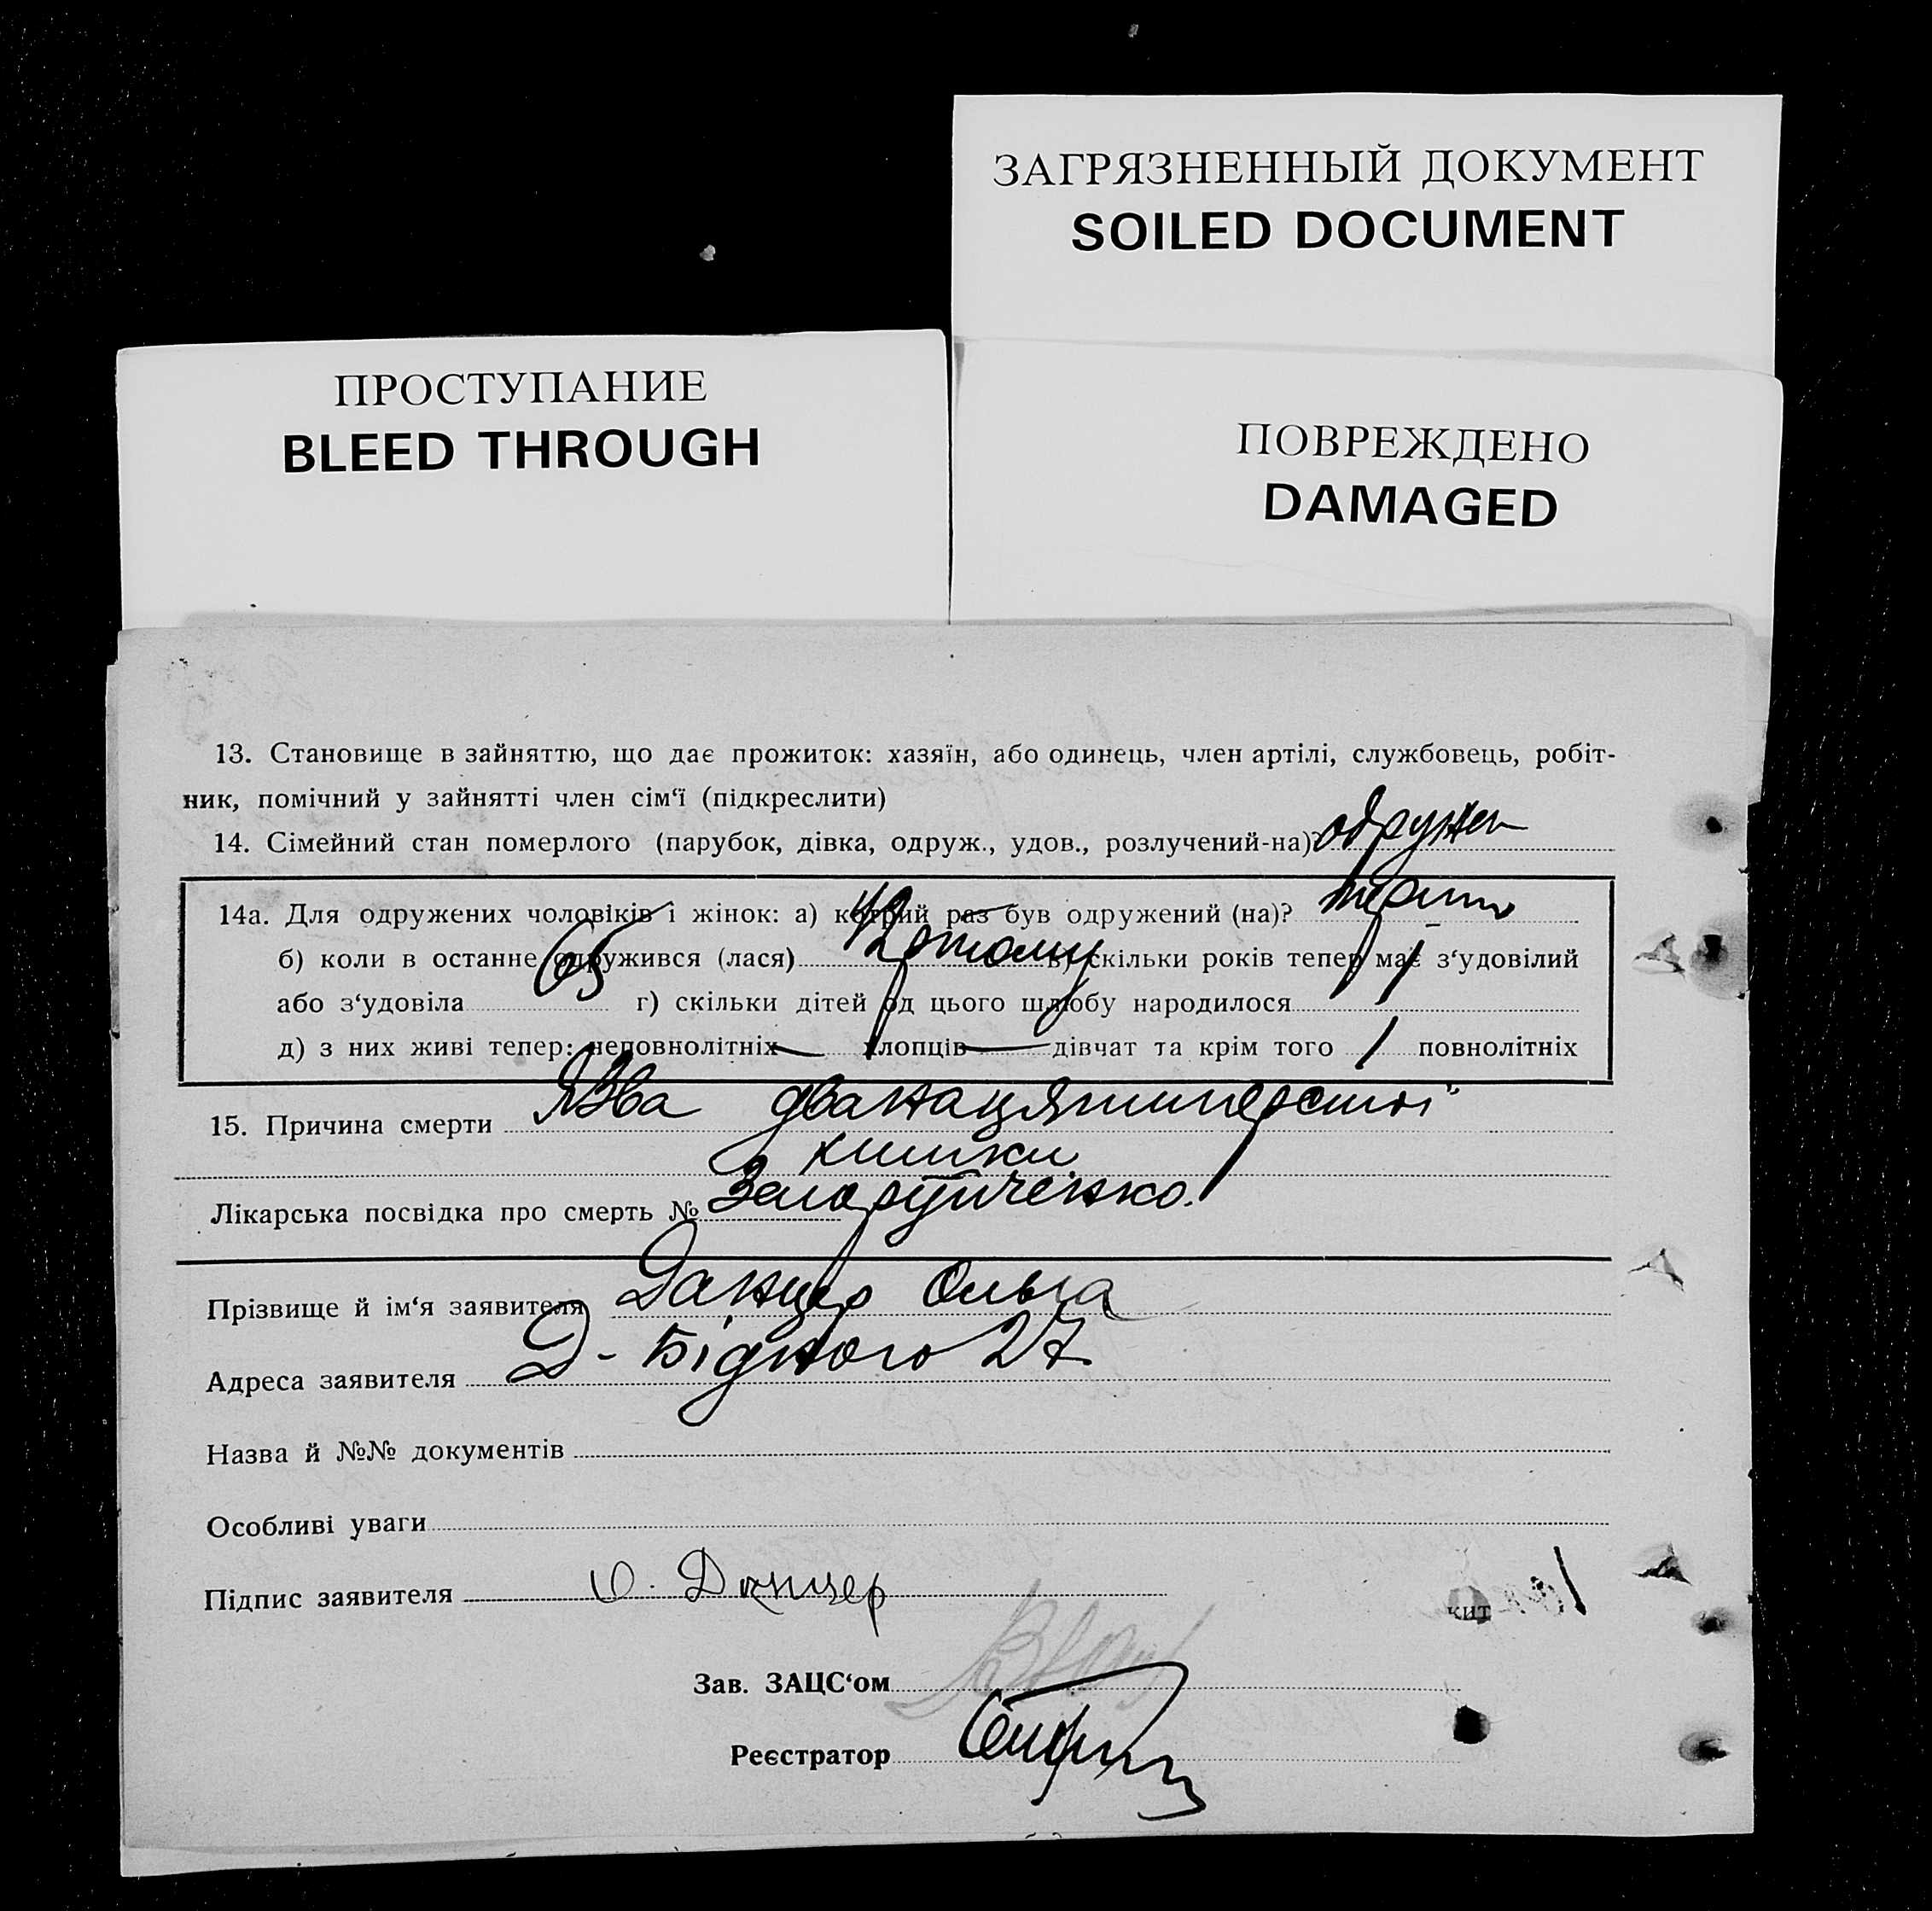 ЗАГРЯЗНЕННЫЙ ДОКУМЕНТ
SOILED DOCUMENT
ПРОСТУПАНИЕ
BLEED THROUGH
ПОВРЕЖДЕНО
DAMAGED
13. Становище в зайняттю, що дає прожиток: хазяїн, або одинець, член артілі, службовець, робіт-
ник, помічний у зайнятті член сім‘ї (підкреслити)
14. Сімейний стан померлого (парубок, дівка, одруж., удов., розлучений-на)? одружен
14а. Для одружених чоловіків і жінок: а) котрий раз був одружений (на)? перш
б) коли в останне одружився (лася) 42 р тому в) скільки років тепер має з‘удовілий
або з‘удовіла 65 г) скільки дітей од цього шлюбу народилося 1
д) з них живі тепер: неповнолітніх — хлопців — дівчат та крім того 1 повнолітніх
15. Причина смерти Язва дванацятиперстої
кишки.
Лікарська посвідка про смерть №
Прізвище й ім‘я заявителя Данцер Ольга
Адреса заявителя Д-Бідного 27
Назва й №№ документів
Особливі уваги
Підпис заявителя О. Данцер
кит
Зав. ЗАЦС‘ом
Реєстратор